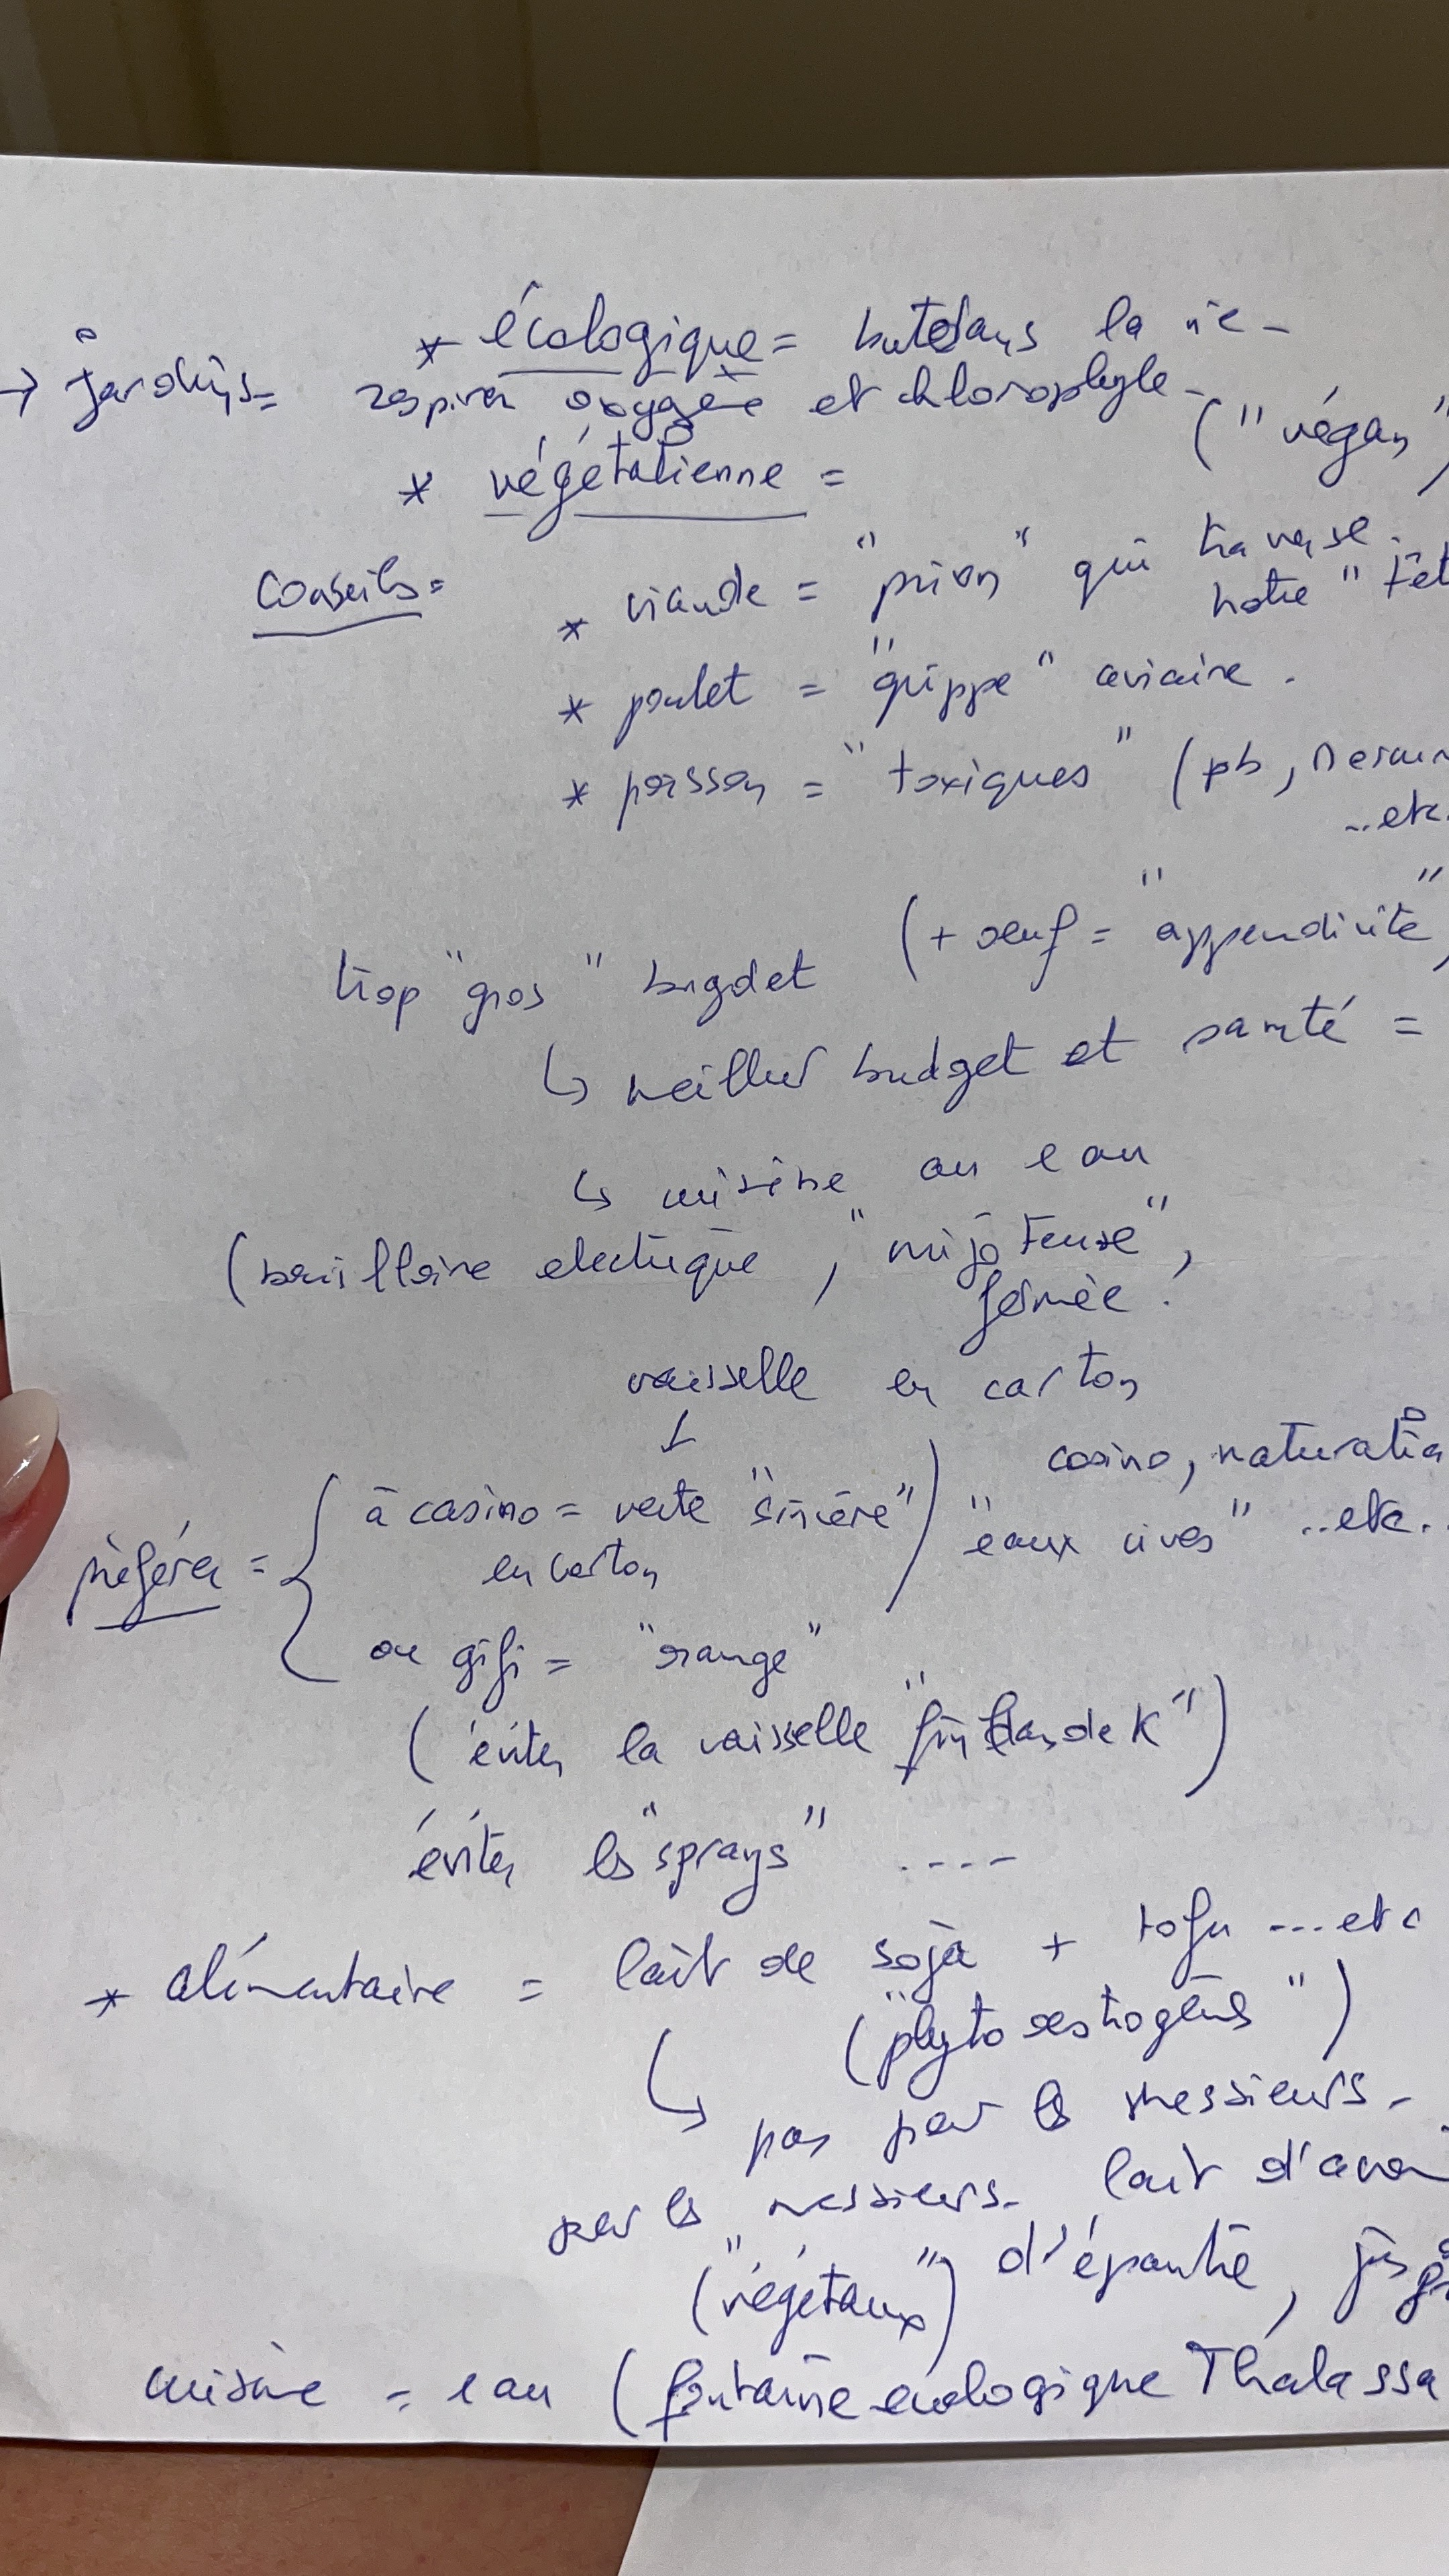 * écologique = but dans la vie -
→ jardins = respirer oxygène et chlorophyle -
("végan")
* végétatienne =
Conseils =
* viande = "prion" qui traverse
notre "têt
* poulet = "grippe" aviaire.
* poisson = "toxiques" (pb,
..etc.
(+ oeuf = "appendicite"
trop "gros" bugdet
↳ meilleur budget et santé =
↳ cuisine au eau
(bouilloire electrique, "mijoteuse",
fermée!
vaisselle en carton
↓
casino, naturalia
à casino = verte "sincère")
"eaux vives" ..etc..
préférer =
en carton
ou gifi = "orange"
(éviter la vaisselle
éviter les "sprays" ....
* alimentaire = lait de soja + tofu ...etc
("phytoestrogènes")
↳ pas pour les messieurs -
pour les messieurs - lait d'avoi
("végétaux") d'épautre,
cuisine = eau (fontaine écologique Thalassa